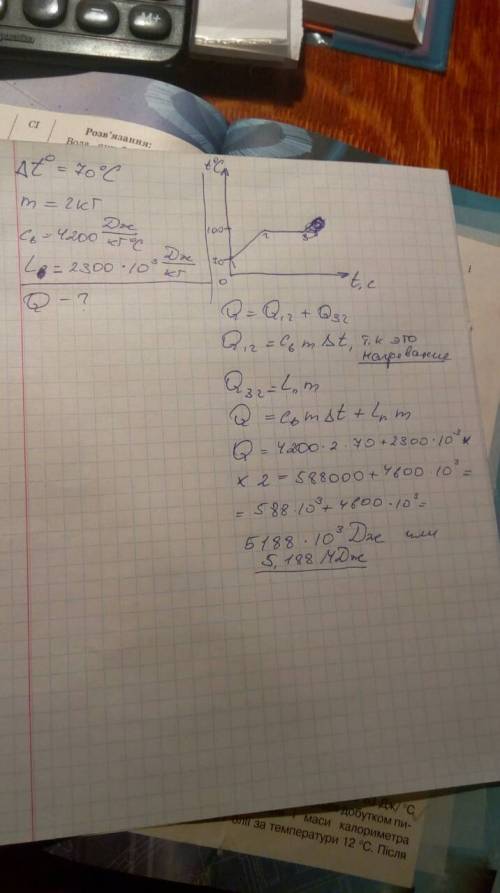 M+
CI
Розв'язання:
Δt° = 70°C
m = 2 кг
cв = 4200 Дж/кг°C
L = 2300·10³ Дж/кг
Q - ?
t°C
100
2
3
0
t, c
Q = Q₁₂ + Q₃₂
Q₁₂ = cв m Δt, т.к это
нагревание
Q₃₂ = Lп m
Q = cв m Δt + Lп m
Q = 4200·2·70 + 2300·10³ ×
× 2 = 588000 + 4600·10³ =
= 588·10³ + 4600·10³ =
5188·10³ Дж или
5,188 МДж
Дж/°C
добутком
маси калориметра
за температури 12 °C. Після